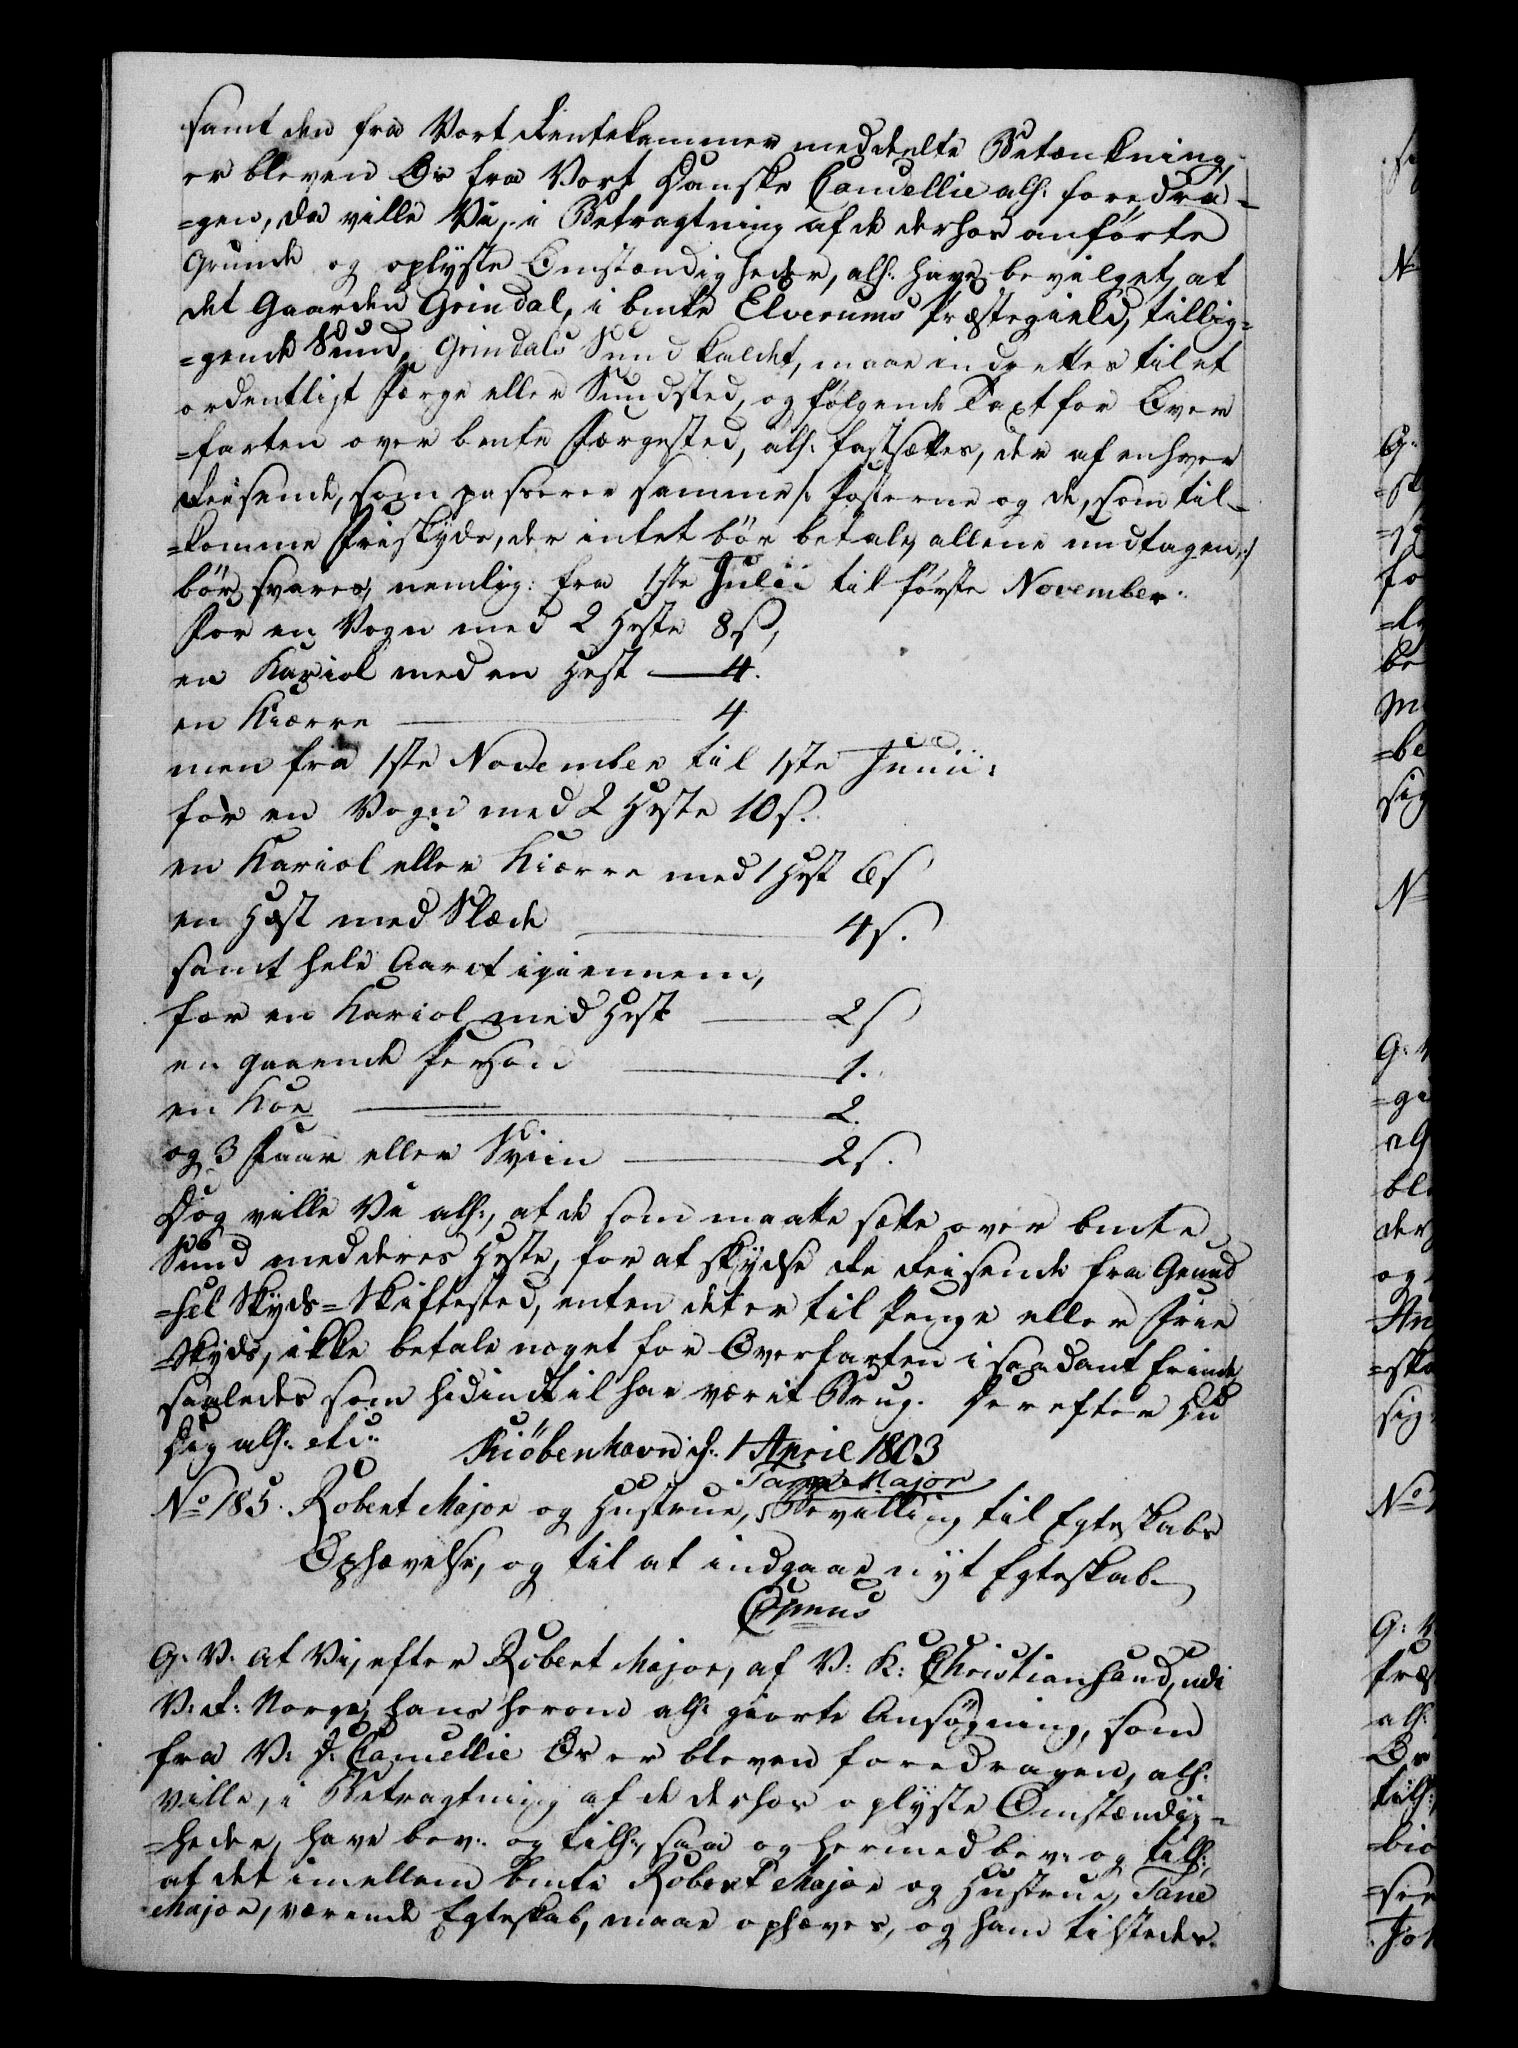 samt den fra Vort Rentekammer meddeelte Betænkning,
er bleven Os fra Vort Danske Cancellie alh: foredra-
=gen, da ville Vi, i Betragtning af de derhos anførte
Grunde og oplyste Omstændigheder, alh: have bevilget, at
det Gaarden Grindal, i bmte Elverums Præstegield, tillig-
=gende Sund, Grindals Sund kaldet, maae indrettes til et
ordentligt Færge eller Sundsted, og følgende Taxt for Over
=farten over bmte Færgested, alh: fastsættes, der af enhver
Reisende, som passerer samme /: Posterne og de, som til-
=komme Friskyds, der intet bør betale, allene undtagen :/
bør svares, nemlig: fra 1ste Julii til første November.
For en Vogn med 2 Heste 8 s,
en Kariol med en Hest — 4.
en Kiærre — 4
men fra 1ste November til 1ste Junii:
for en Vogn med 2 Heste 10 s.
en Kariol eller Kiærre med 1 Hest 6 s
en Hest med Slæde — 4 s.
samt hele Aaret igiennem,
for en Kariol med Hest — 2 s
en gaaende Person — 1.
en Koe — 2.
og 3 Faar eller Sviin — 2 s.
Dog ville Vi alh:, at de som maatte sætte over bmte
Sund med deres Heste, for at skydse de Reisende fra Grund
=set Skyds=Skiftested, enten det er til Penge eller Frie
=Skyds, ikke betale noget for Overfarten i saadant Erinde,
saaledes som hidindtil har værit Brug. Derefter Du
Dig alh: etc:
Kiøbenhavn d: 1 April 1803
No 185. Robert Major og Hustrue, Jane Major, Bevilling til Egteskabs
Ophævelse, og til at indgaae nyt Egteskab.
Gr: V: at Vi, efter Robert Major, af V: K: Christiansand, udi
V: R: Norge, hans herom alh: giorte Ansøgning, som
fra V: D: Cancellie Os er bleven foredragen, alh:
ville, i Betragtning af de derhos oplyste Omstændig-
=heder, have bev: og tilh:, saa og hermed bev: og tilh:,
at det imellem bmte Robert Major og Hustrue, Jane
Major, værende Egteskab, maae ophæves, og ham tilstedes